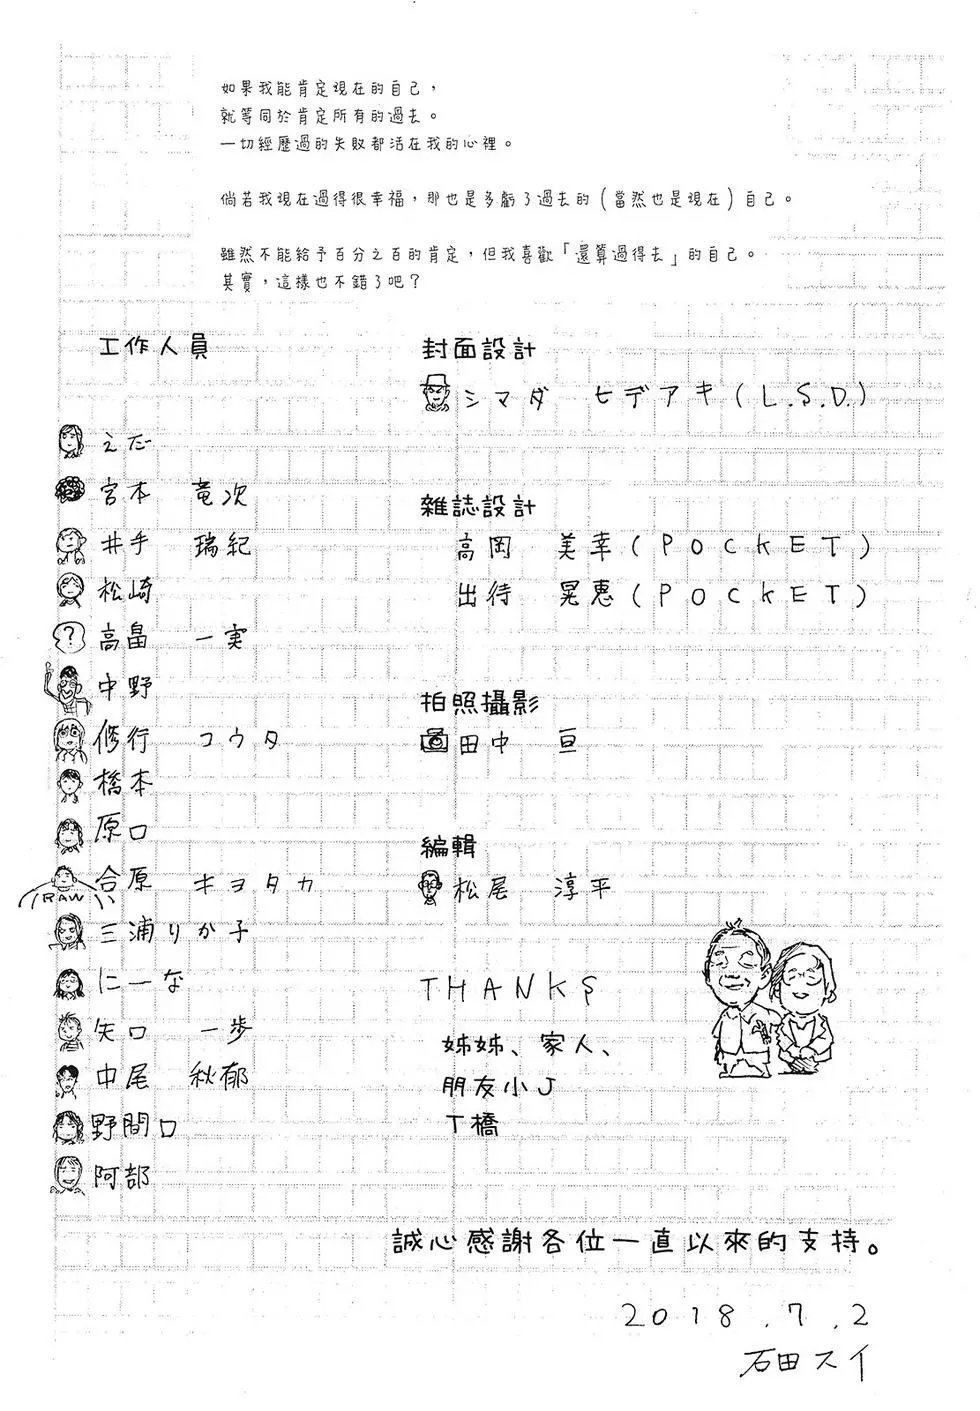 如果我能肯定現在的自己，
就等同於肯定所有的過去。
一切經歷過的失敗都活在我的心裡。
倘若我現在過得很幸福，那也是多虧了過去的（當然也是現在）自己。
雖然不能給予百分之百的肯定，但我喜歡「還算過得去」的自己。
其實，這樣也不錯了吧？
工作人員
えだ
宮本 竜次
井手 瑞紀
松崎
?
高畠 一実
中野
修行 コウタ
橋本
原口
合原 キヨタカ
RAW
三浦りか子
にーな
矢口 一歩
中尾 秋郁
野間口
阿部
封面設計
シマダ ヒデアキ(L.S.D.)
雜誌設計
高岡 美幸(POCKET)
出待 晃恵(POCKET)
拍照攝影
田中 亘
編輯
松尾 淳平
THANKS
姊姊、家人、
朋友小J
T橋
誠心感謝各位一直以來的支持。
2018.7.2
石田スイ